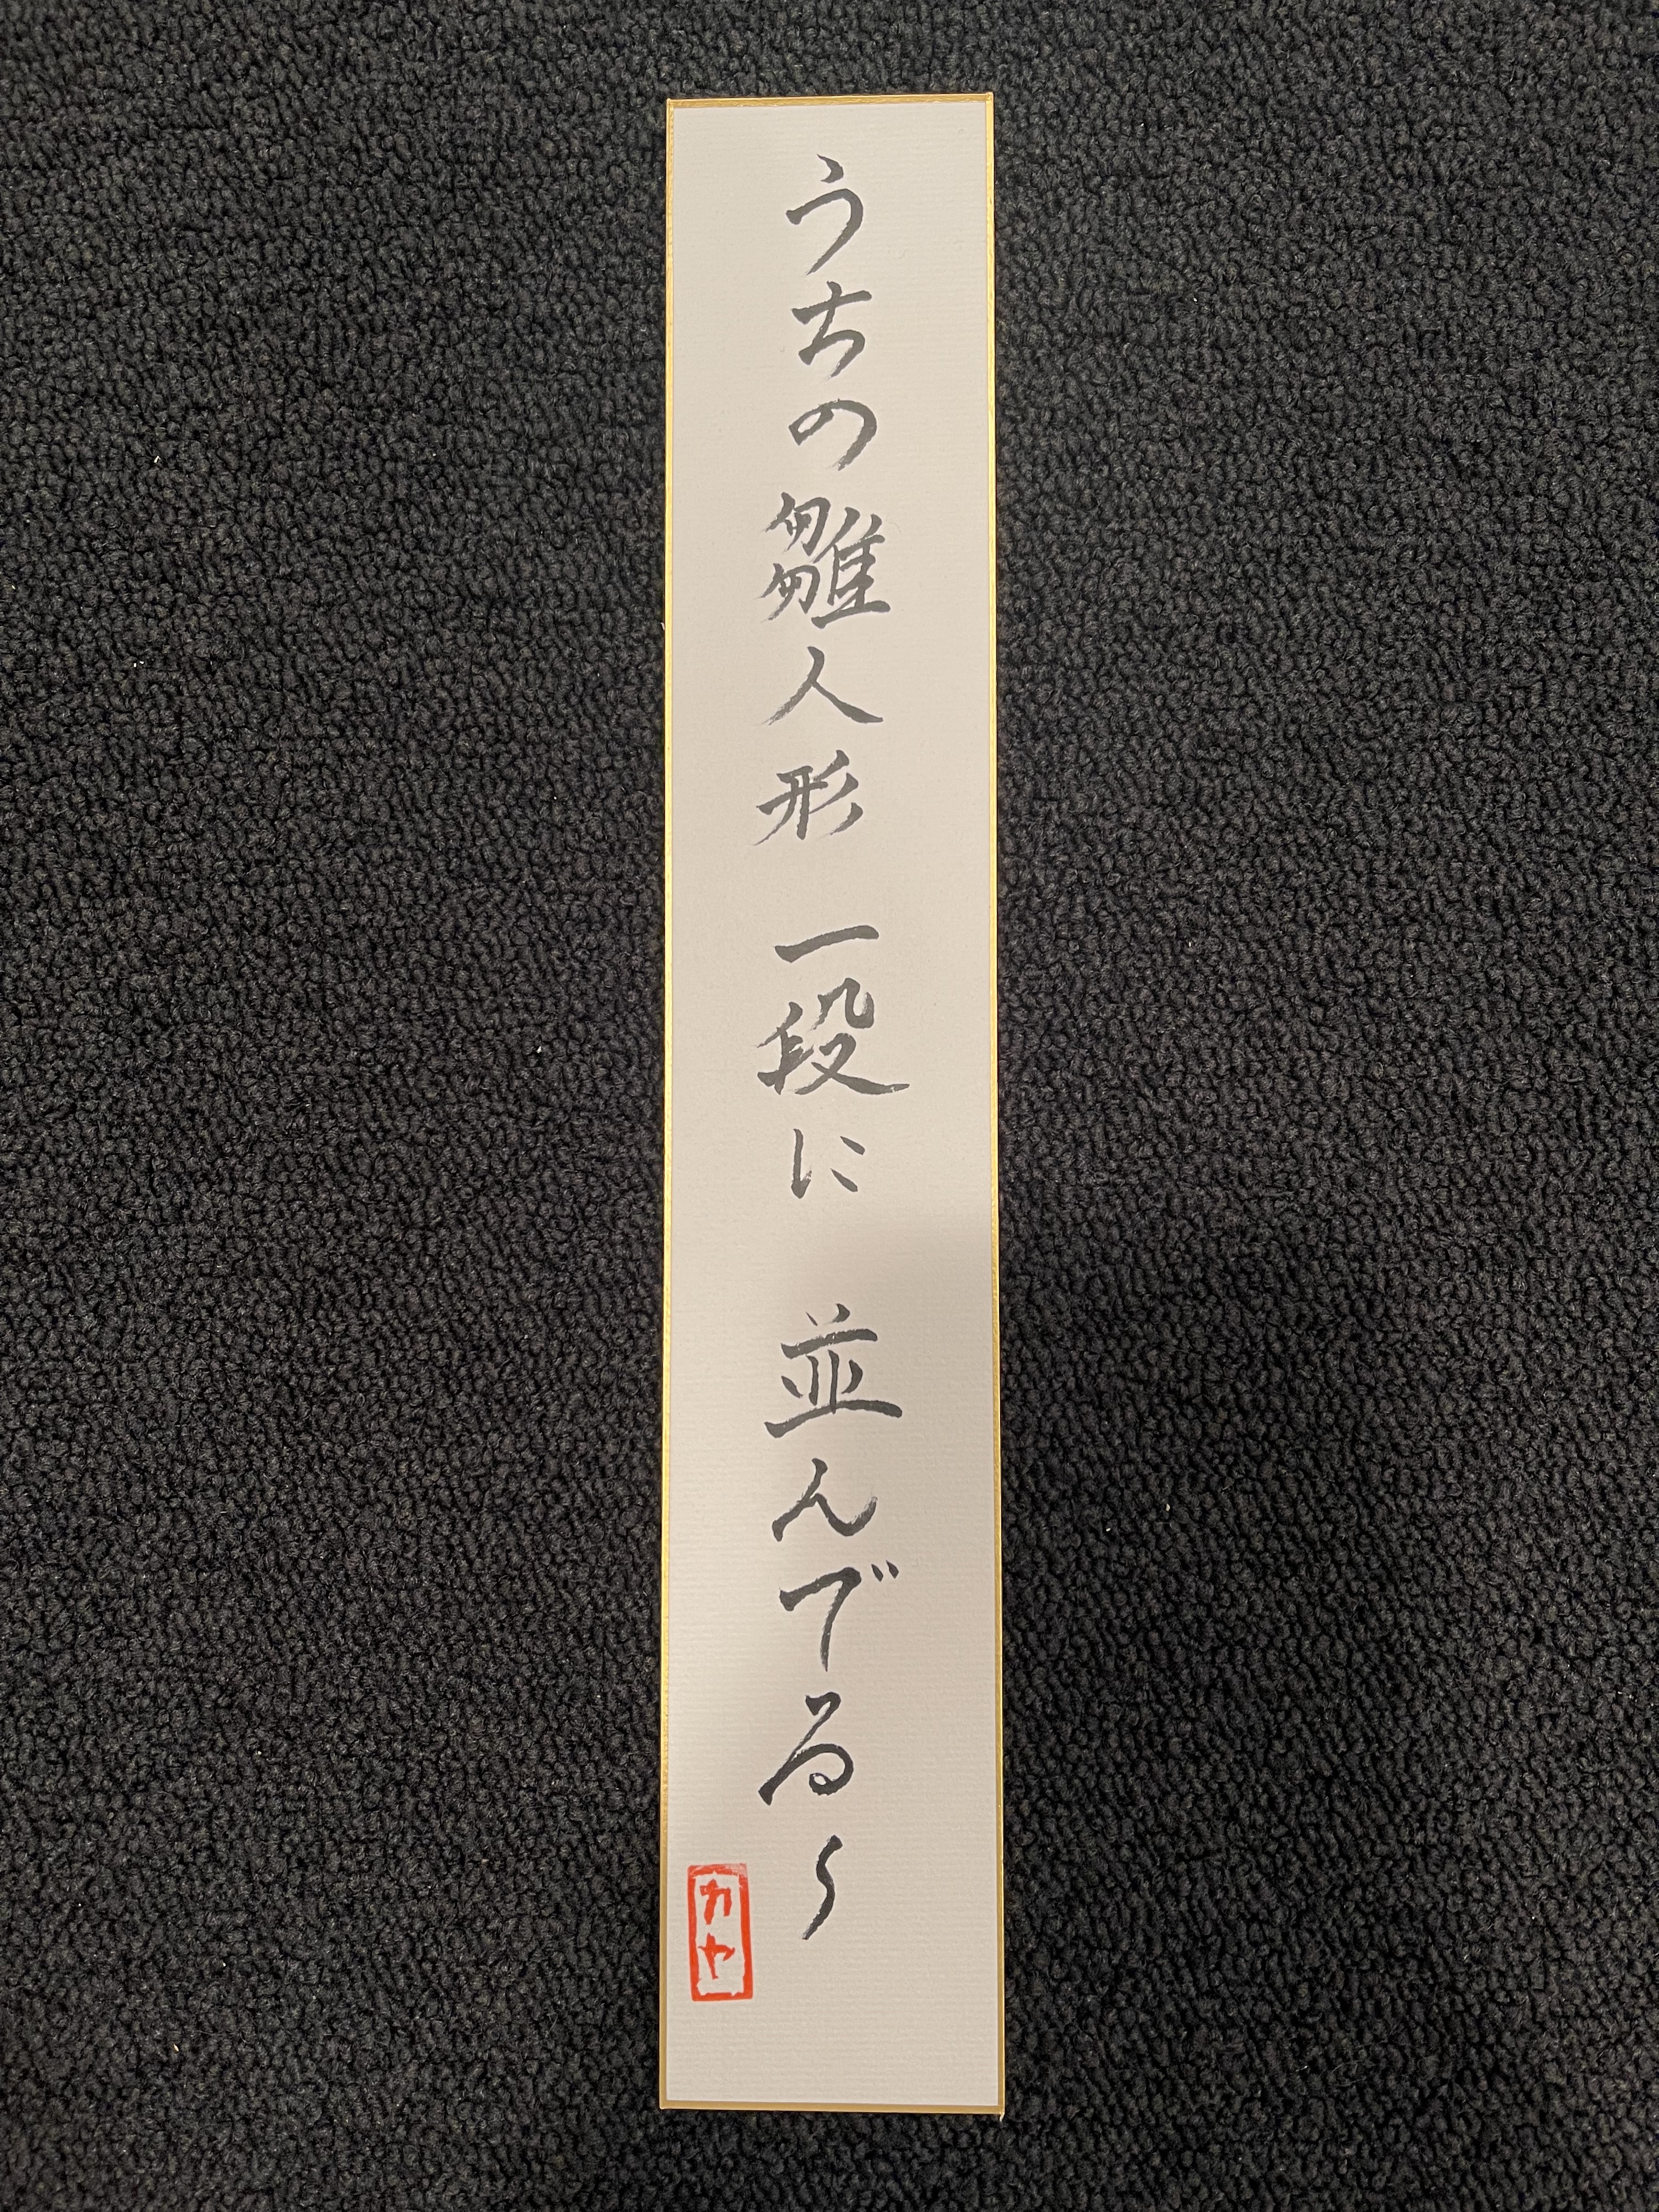 うちの雛人形 一段に 並んでる〜
カヤ